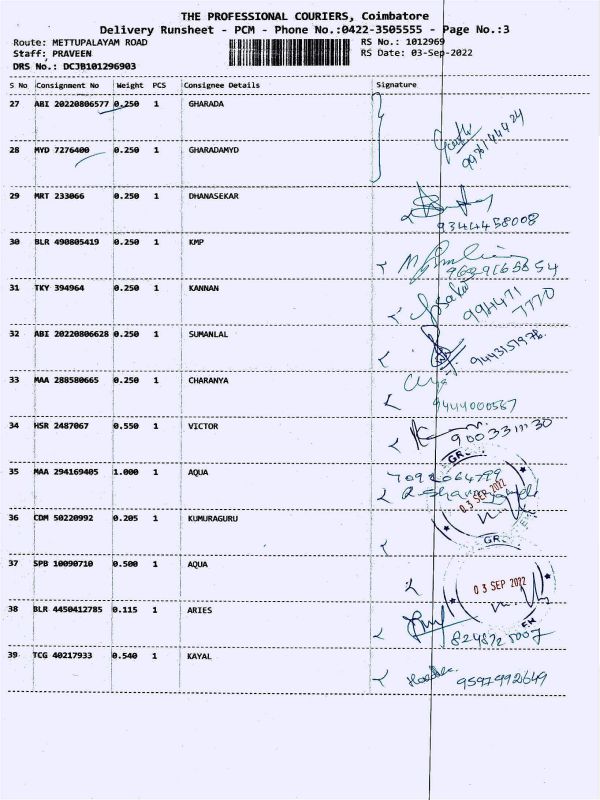 THE PROFESSIONAL COURIERS, Coimbatore
Delivery Runsheet - PCM - Phone No.:0422-3505555 - Page No.:3
Route: METTUPALAYAM ROAD RS No.: 1012969
Staff: PRAVEEN RS Date: 03-Sep-2022
DRS No.: DCJB101296903
S No Consignment No Weight PCS Consignee Details Signature
27 ABI 20220806577 0.250 1 GHARADA
28 MYD 7276400 0.250 1 GHARADAMYD
29 MRT 233066 0.250 1 DHANASEKAR
9344458008
30 BLR 490805419 0.250 1 KMP
9629165854
31 TKY 394964 0.250 1 KANNAN
32 ABI 20220806628 0.250 1 SUMANLAL
33 MAA 288580665 0.250 1 CHARANYA
9444000567
34 HSR 2487067 0.550 1 VICTOR
35 MAA 294169405 1.000 1 AQUA
03 SEP 2022
36 CDM 50220992 0.205 1 KUMURAGURU
GR
37 SPB 10090710 0.500 1 AQUA
03 SEP 2022
38 BLR 4450412785 0.115 1 ARIES
39 TCG 40217933 0.540 1 KAYAL
9597992649